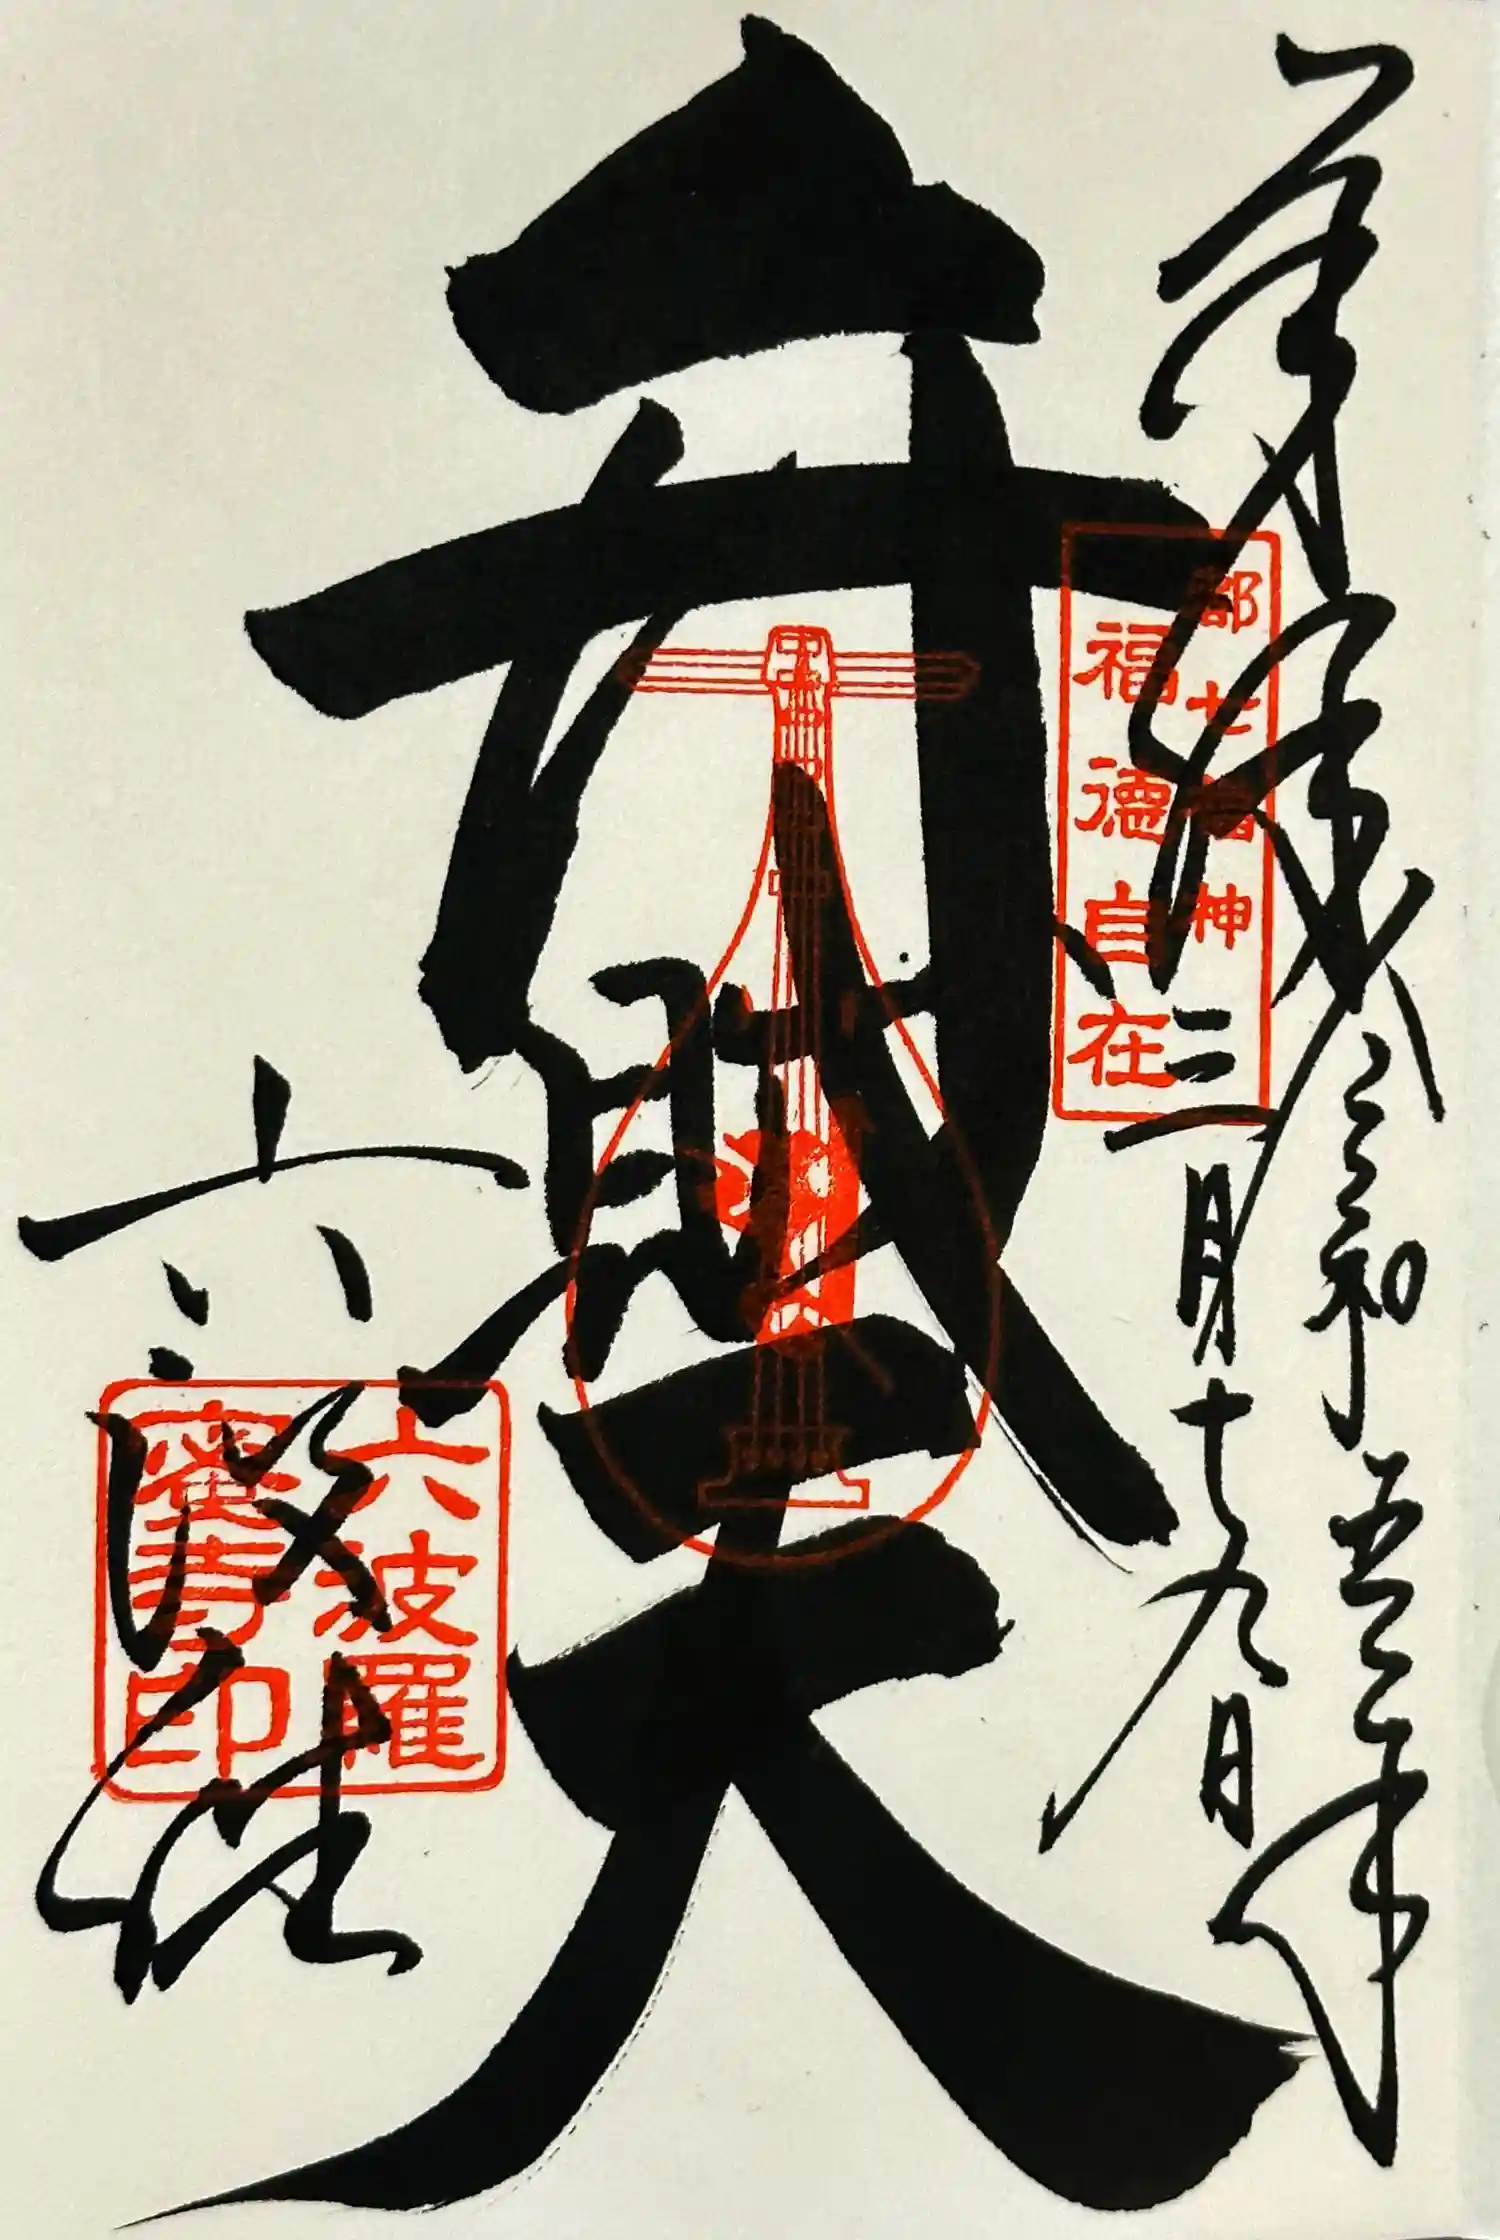 奉拝 令和五年
三月十九日
都七福神
福徳自在
弁財天
六波羅
蜜寺印
六波